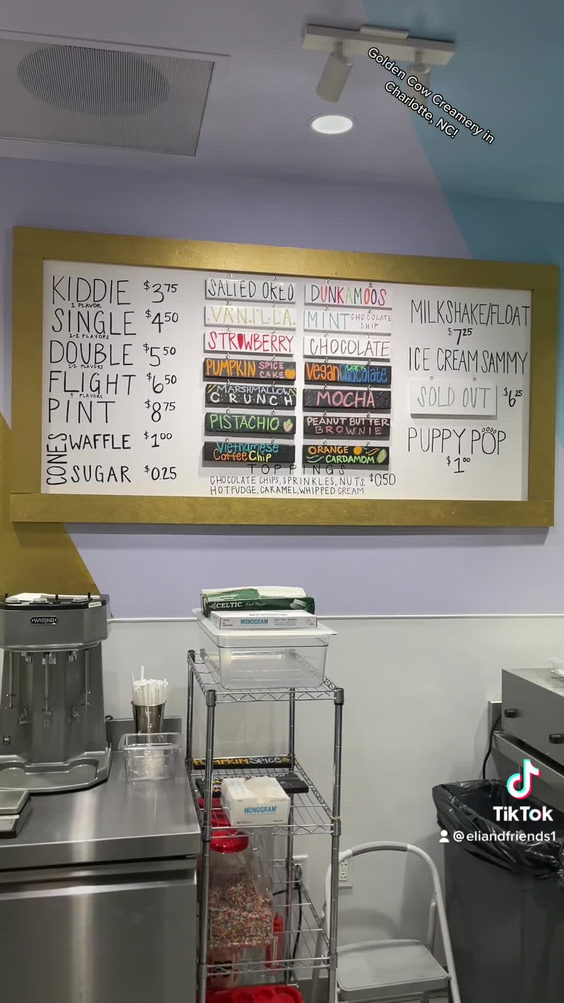 Golden Cow Creamery in
Charlotte, NC!
KIDDIE $3.75
1 FLAVOR
SINGLE $4.50
1-2 FLAVORS
DOUBLE $5.50
1-2 FLAVORS
FLIGHT $6.50
4 FLAVORS
PINT $8.75
CONES
WAFFLE $1.00
SUGAR $0.25
SALTED OREO
VANILLA
STRAWBERRY
PUMPKIN SPICE CAKE
MARSHMALLOW
CRUNCH
PISTACHIO
Vietnamese
Coffee Chip
DUNKAMOOS
MINT CHOCOLATE
CHIP
CHOCOLATE
Vegan Dark Chocolate
MOCHA
PEANUT BUTTER
BROWNIE
ORANGE
CARDAMOM
TOPPINGS
CHOCOLATE CHIPS, SPRINKLES, NUTS, $0.50
HOT FUDGE, CARAMEL, WHIPPED CREAM
MILKSHAKE/FLOAT
$7.25
ICE CREAM SAMMY
SOLD OUT $6.25
PUPPY POP
$1.00
WARING
CELTIC
MONOGRAM
PUMPKIN SPICE
MONOGRAM
TikTok
@eliandfriends1